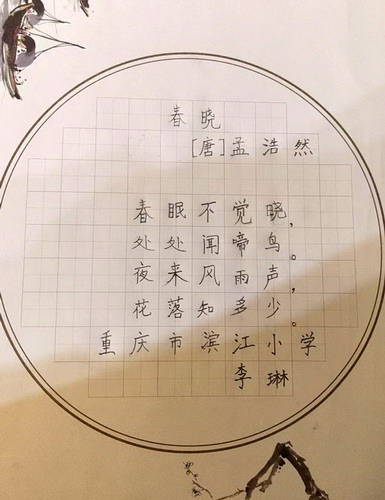 春晓
[唐]孟浩然
春眠不觉晓，
处处闻啼鸟。
夜来风雨声，
花落知多少。
重庆市滨江小学
李琳